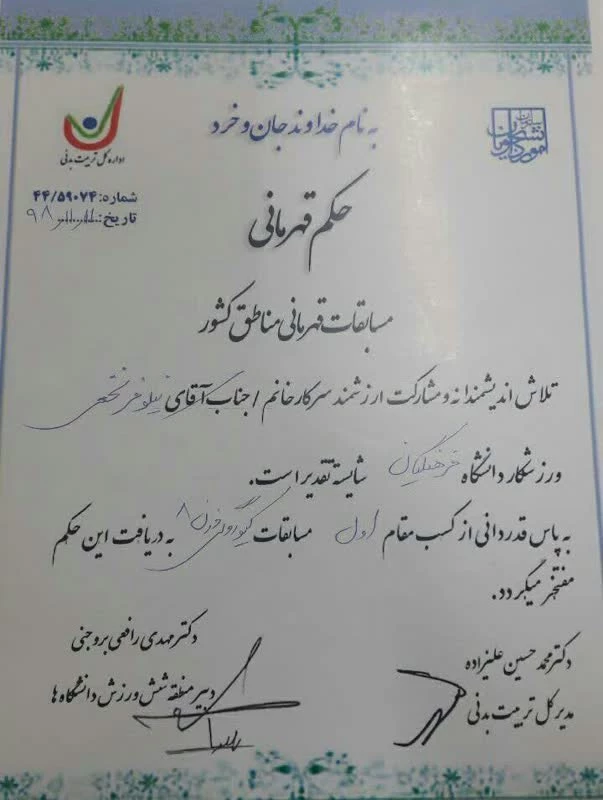 به نام خداوند جان و خرد
سازمان امور دانشجویان
اداره کل تربیت بدنی
شماره: ۴۴/۵۹۰۷۴
تاریخ: ۹۸
حکم قهرمانی
مسابقات قهرمانی مناطق کشور
تلاش اندیشمندانه و مشارکت ارزشمند سرکار خانم / جناب آقای نیلوفر
ورزشکار دانشگاه فرهنگیان شایسته تقدیر است.
به پاس قدردانی از کسب مقام اول مسابقات به دریافت این حکم
مفتخر میگردد.
دکتر محمد حسین علیزاده
مدیر کل تربیت بدنی
دکتر مهدی رافعی بروجنی
دبیر منطقه شش ورزش دانشگاه ها